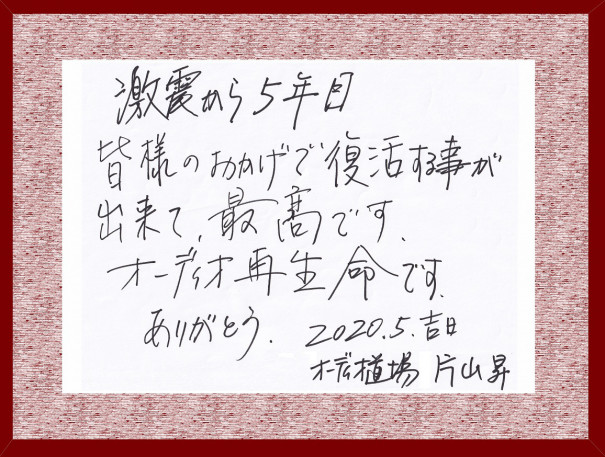 激震から5年目
皆様のおかげで復活する事が
出来て、最高です.
オーディオ再生命です.
ありがとう. 2020.5.吉日
オーディオ道場 片山昇